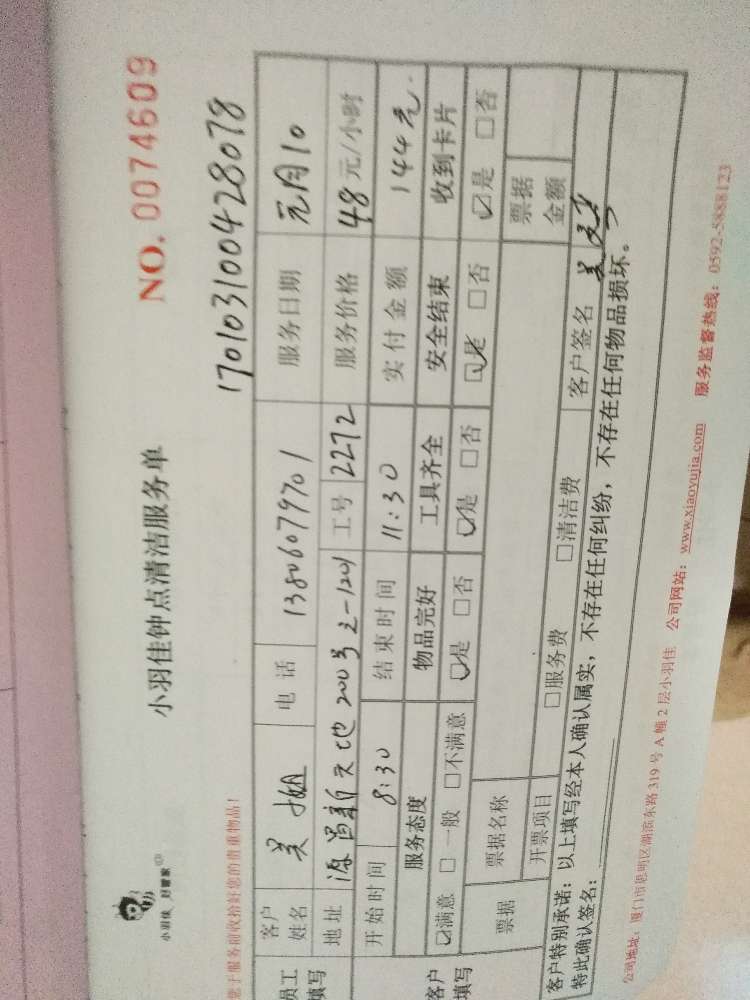 小羽佳 好管家
小羽佳钟点清洁服务单
NO. 0074609
您于服务前收拾好您的贵重物品!
170103100428078
员工填写
客户姓名 吴姐 电话 13806079701 服务日期 元月10
地址 源昌新天地200号之-1201 工号 2272 服务价格 48元/小时
开始时间 8:30 结束时间 11:30 实付金额 144元.
客户填写
服务态度 物品完好 工具齐全 安全结束 收到卡片
☑满意 □一般 □不满意 ☑是 □否 ☑是 □否 ☑是 □否 ☑是 □否
票据 票据名称 票据金额
开票项目 □服务费 □清洁费 客户签名 吴
客户特别承诺:以上填写经本人确认属实,不存在任何纠纷,不存在任何物品损坏。
特此确认签名:
公司地址:厦门市思明区湖滨东路319号A幢2层小羽佳 公司网站:www.xiaoyujia.com 服务监督热线:0592-5888123